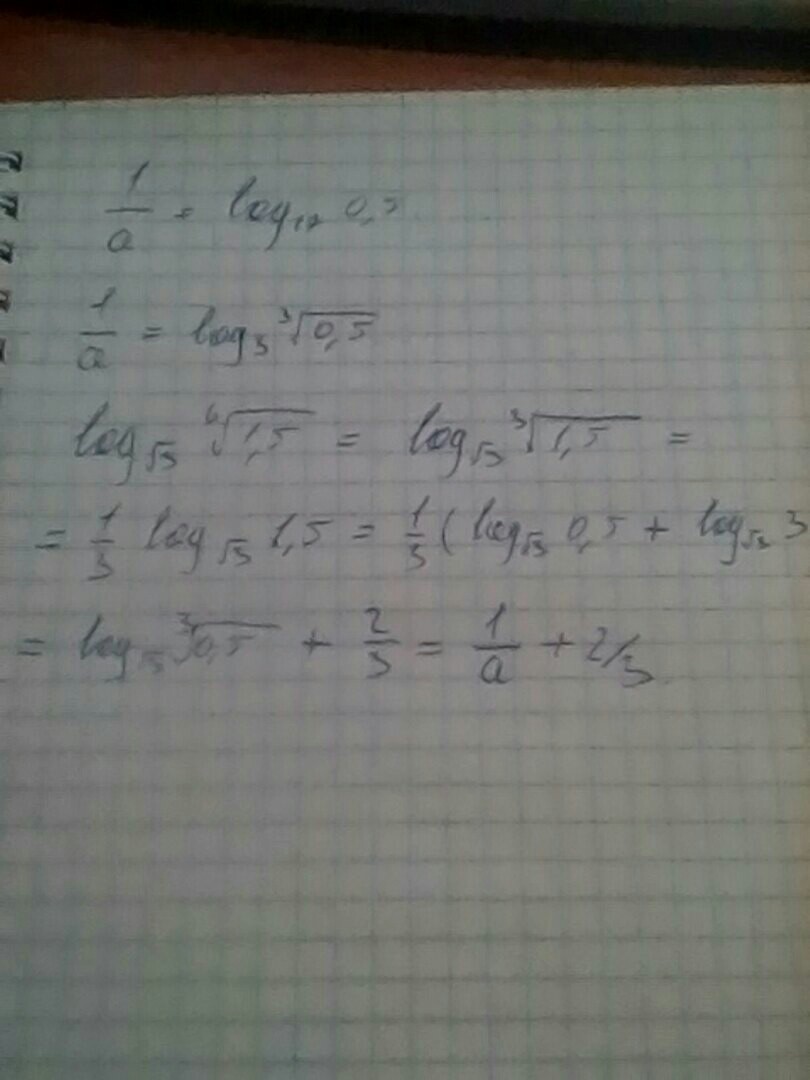 1/a = log₂₇ 0,5
1/a = log₃ ∛0,5
log_√3 ⁶√1,5 = log_√3 ∛1,5 =
= 1/3 log_√3 1,5 = 1/3 ( log_√3 0,5 + log_√3 3
= log_√3 ∛0,5 + 2/3 = 1/a + 2/3